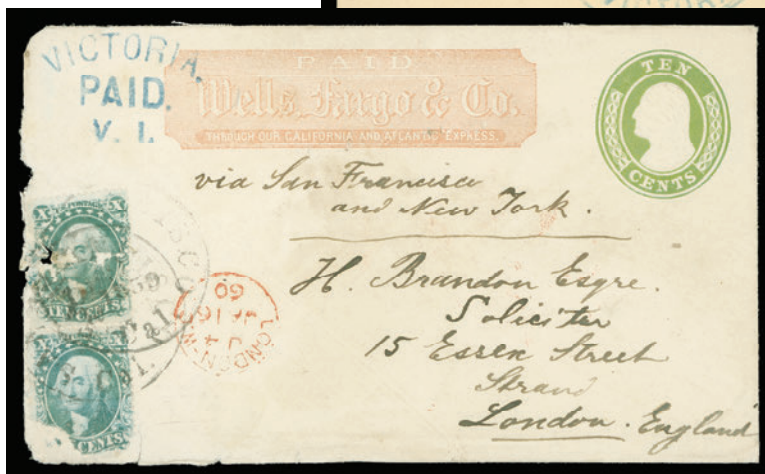 VICTORIA,
PAID.
V. I.
PAID
Wells, Fargo & Co.
THROUGH OUR CALIFORNIA AND ATLANTIC EXPRESS.
TEN
CENTS
via San Francisco
and New York.
H. Brandon Esqre.
Soliciter
15 Essex Street
Strand
London. England
X X
TEN CENTS
CENTS
LONDON
60